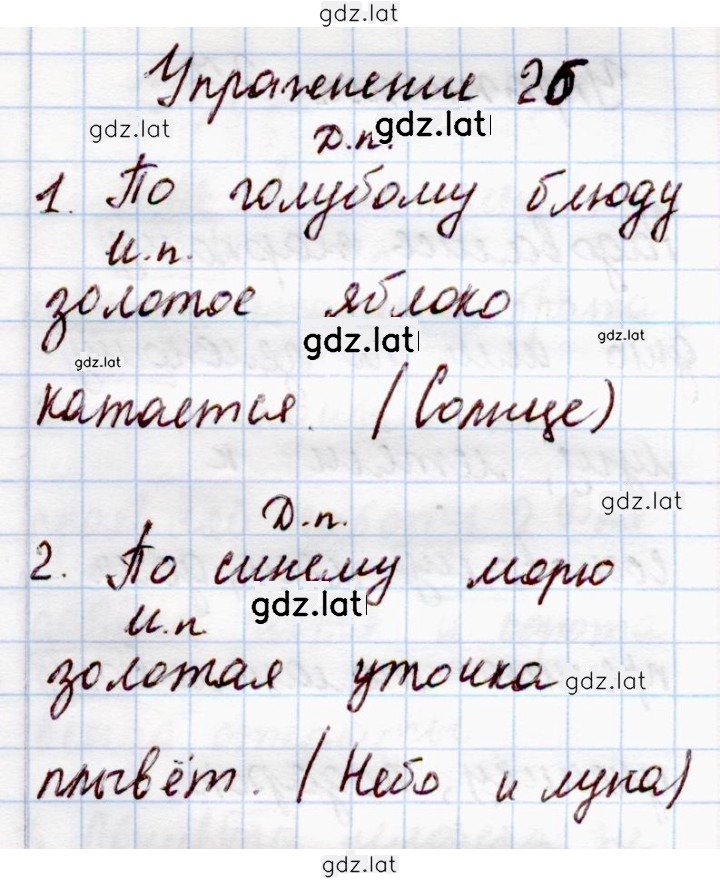 gdz.lat
Упражнение 26
gdz.lat
gdz.lat
Д.п.
1. По голубому блюду
И.п.
золотое яблоко
gdz.lat
gdz.lat
gdz.lat
катается. (Солнце)
gdz.lat
Д.п.
2. По синему морю
gdz.lat
И.п.
золотая уточка
gdz.lat
плывёт. (Небо и луна)
gdz.lat